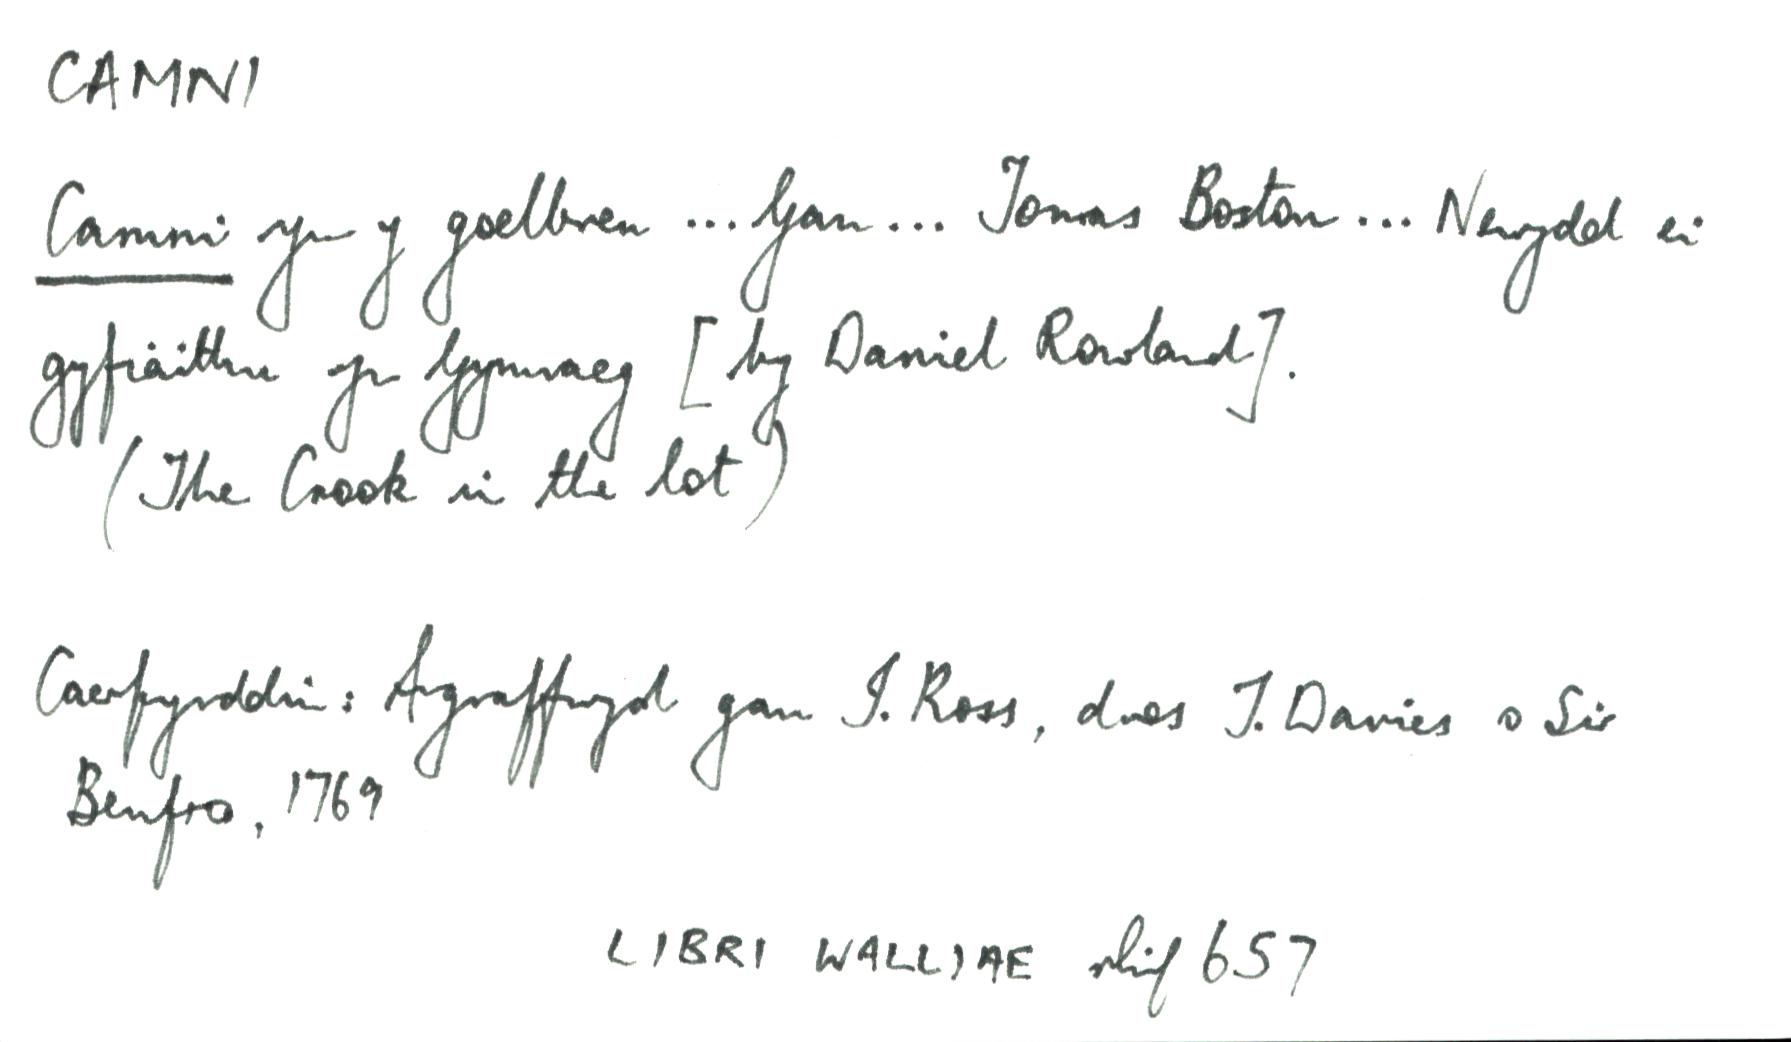 CAMNI
Camni yn y goelbren ... Gan ... Tomas Boston ... Newydd ei
gyfiaithu i'r Gymraeg [by Daniel Rowland].
(The Crook in the lot)
Caerfyrddin: Argraffwyd gan I. Ross, dros I. Davies o Sir
Benfro, 1769
LIBRI WALLIAE rhif 657